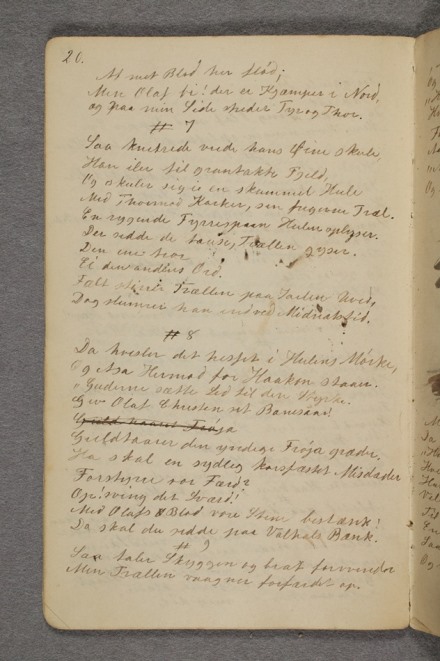 26.
At mit Blod her flød;
Men Olaf bi! der er Kjæmper i Nord,
og paa min Side staaer Tyr og Thor.
# 7
Saa knurrede vrede hans Øine skule,
Han iler til grantakte Fjeld,
Og skuler sig i en skummel Hule
Med Thormod Karker, sin Træl.
En rygende Fyrrespaan Hulen oplyser.
Der sidde de tause, Trællen gyser.
Den ene troer
Ei den andens Ord.
Fælt stirrer Trællen paa Jarlen hvid,
Dog slumrer han ind ved Midnatstid.
# 8
Da hvisler det hæst i Hulens Mørke,
Og Asa Hermod for Haakon staaer.
"Guderne sætte Lid til din Styrke.
Giv Olaf Christen sit Banesaar!
Guld taarer Frøja
Guldtaarer den yndige Frøja græder.
Ha skal en sydlig korsfæstet Misdæder
Forstyrre vor Færd?
Op! sving dit Sværd!
Med Olafs Blod vore Stene bestænk!
Da skal du sidde paa Valhals Bænk.
# 9
Saa taler Skyggen og brat forsvinder
Men Trællen vaagner forfærdet op.